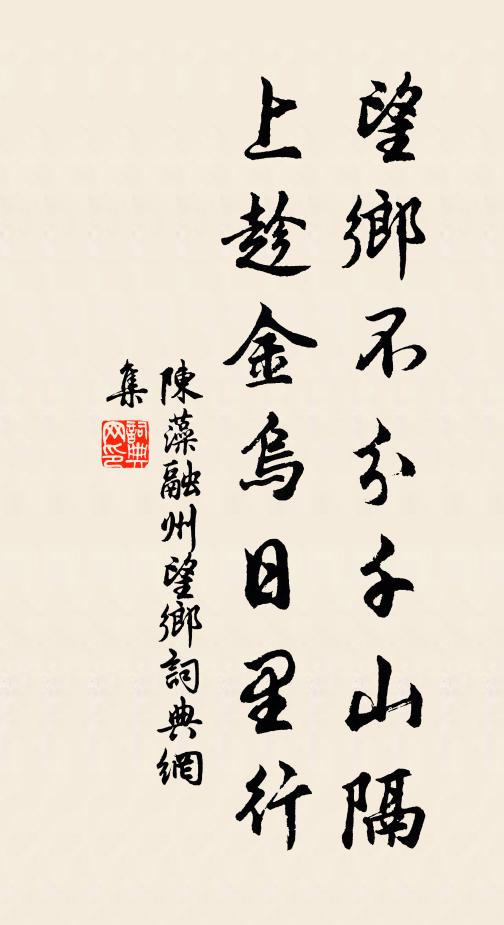 望鄉不分千山隔
上趁金烏日里行
陳藻融州望鄉詞典網
集
詞典
网印